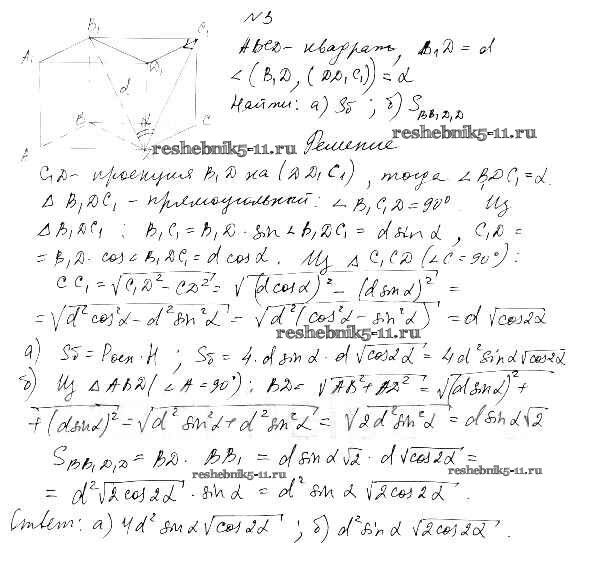 N 3
A₁ B₁ C₁ D₁ A B C d α
ABCD - квадрат, B₁D = d
∠(B₁D, (DD₁C₁)) = α
Найти: а) Sб ; б) S BB₁D₁D
reshebnik5-11.ru
reshebnik5-11.ru
Решение
C₁D - проекция B₁D на (DD₁C₁), тогда ∠B₁DC₁ = α.
Δ B₁DC₁ - прямоугольный: ∠B₁C₁D = 90°. Из
Δ B₁DC₁ : B₁C₁ = B₁D · sin ∠B₁DC₁ = d sin α , C₁D =
= B₁D · cos ∠B₁DC₁ = d cos α . Из Δ C₁CD (∠C = 90°) :
CC₁ = √(C₁D² − CD²) = √((d cos α)² − (d sin α)²) =
= √(d² cos² α − d² sin² α) = √(d² (cos² α − sin² α)) = d √(cos 2α)
reshebnik5-11.ru
а) Sб = Pосн · H ; Sб = 4 · d sin α · d √(cos 2α) = 4d² sin α √(cos 2α)
б) Из Δ ABD (∠A = 90°) : BD = √(AB² + AD²) = √((d sin α)² +
+ (d sin α)²) = √(d² sin² α + d² sin² α) = √(2d² sin² α) = d sin α √2
S BB₁D₁D = BD · BB₁ = d sin α √2 · d √(cos 2α) =
reshebnik5-11.ru
reshebnik5-11.ru
= d² √(2cos 2α) · sin α = d² sin α √(2cos 2α) .
Ответ: а) 4d² sin α √(cos 2α) ; б) d² sin α √(2cos 2α) .